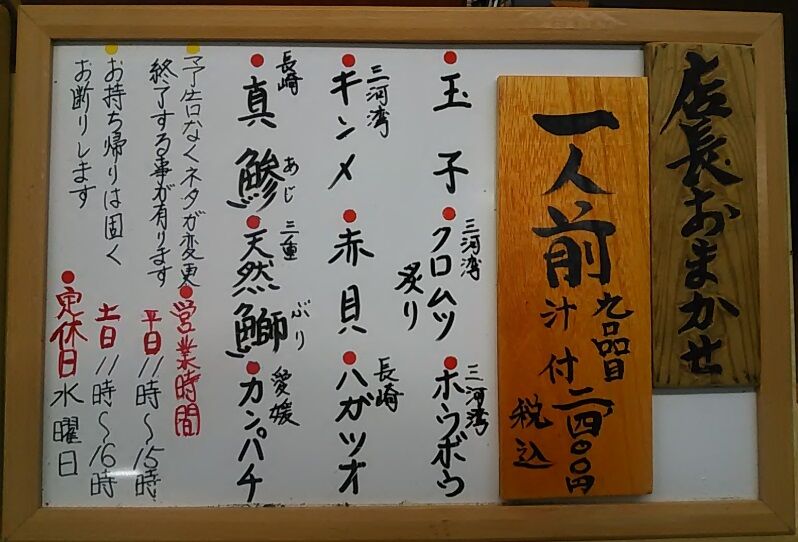 店長おまかせ
一人前
九品目
汁付
二四〇〇円
税込
玉子
三河湾
クロムツ
炙り
三河湾
ホウボウ
三河湾
キンメ
赤貝
長崎
ハガツオ
長崎
真鯵
あじ
三重
天然鰤
ぶり
愛媛
カンパチ
予告なくネタが変更
終了する事が有ります
お持ち帰りは固く
お断りします
営業時間
平日11時～15時
土日11時～16時
定休日水曜日